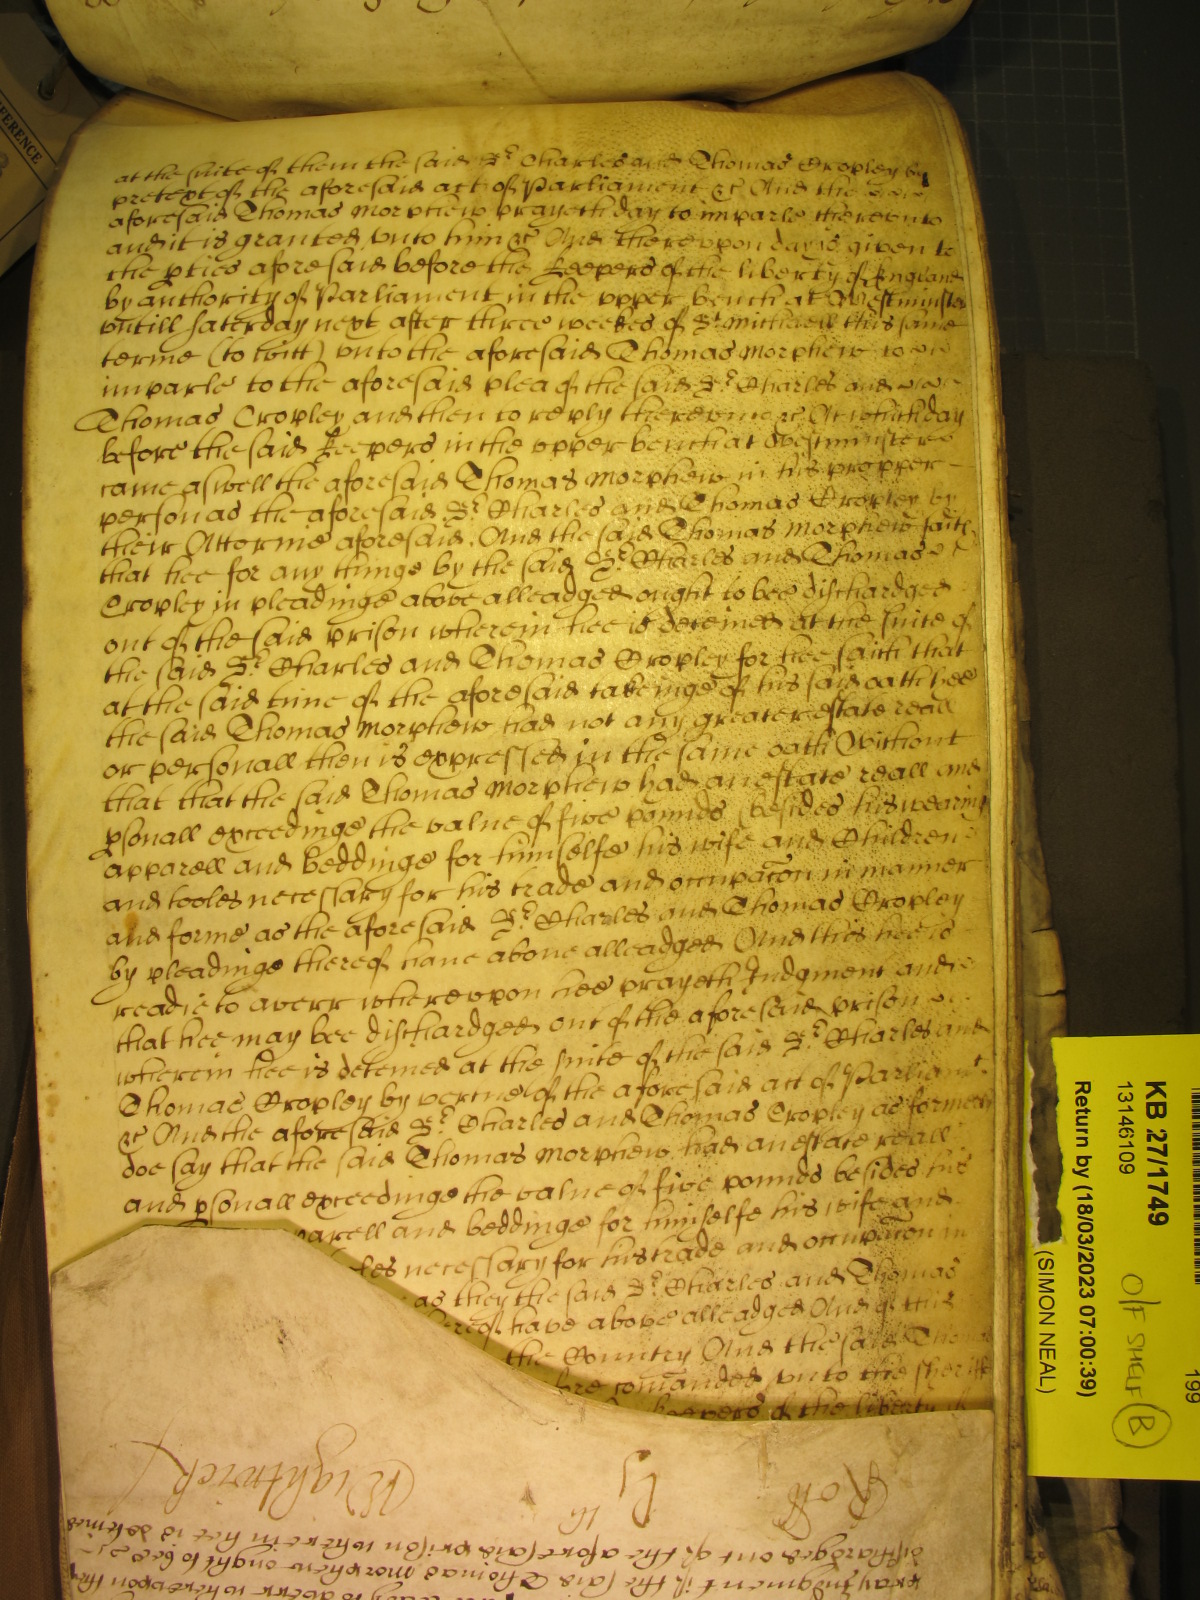 at the suite of them the said Sr Charles and Thomas Cropley by
pretext of the aforesaid act of Parliament &c And the
aforesaid Thomas Morphew prayeth day to imparle therevnto
and it is granted vnto him &c And therevpon day is given to
the pties aforesaid before the Keepers of the liberty of England
by authority of Parliament in the vpper bench at Westminster
vntill Saturday next after three weekes of St Michaell this same
terme (to witt) vnto the aforesaid Thomas Morphew to
imparle to the aforesaid plea of the said Sr Charles and
Thomas Cropley and then to reply therevnto &c At which day
before the said Keepers in the vpper bench at Westminster
came aswell the aforesaid Thomas Morphew in his propper
person as the aforesaid Sr Charles and Thomas Cropley by
their Attorme aforesaid. And the said Thomas Morphew saith
that hee for any thinge by the said Sr Charles and Thomas
Cropley in pleadinge above alleadged ought to bee dischardged
out of the said prison wherein hee is deteined at the suite of
the said Sr Charles and Thomas Cropley for hee saith that
at the said time of the aforesaid takeinge of his said oath hee
the said Thomas Morphew had not any greater estate reall
or personall then is expressed in the same oath Without
that that the said Thomas Morphew had an estate reall and
psonall exceedinge the value of five pounds (besides his wearing
apparell and beddinge for himselfe his wife and Children
and tooles necessary for his trade and occupacon in manner
and forme as the aforesaid Sr Charles and Thomas Cropley
by pleadinge thereof have above alleadged And this hee is
readie to averr wherevpon hee prayeth Judgment and
that hee may bee dischardged out of the aforesaid prison
wherein hee is deteined at the suite of the said Sr Charles and
Thomas Cropley by vertue of the aforesaid act of Parliamt
&c And the aforesaid Sr Charles and Thomas Cropley as formerly
doe say that the said Thomas Morphew had an estate reall
and psonall exceedinge the value of five pounds besides his
parell and beddinge for himselfe his wife and
les necessary for his trade and occupacon in
as they the said Sr Charles and Thomas
ereof have above alleadged And of this
the Country And the said Thomas
fore comanded vnto the Sheriff
keepers of the liberty of
Wightwick
16
Roll
dischardged out of the aforesaid prison wherein hee is deteined
pray Judgment if the said Thomas Morphew ought to bee
ready to averr wherevpon they
KB 27/1749
13146109
Return by (18/03/2023 07:00:39)
(SIMON NEAL)
O/F SHELF B
199
FERENCE